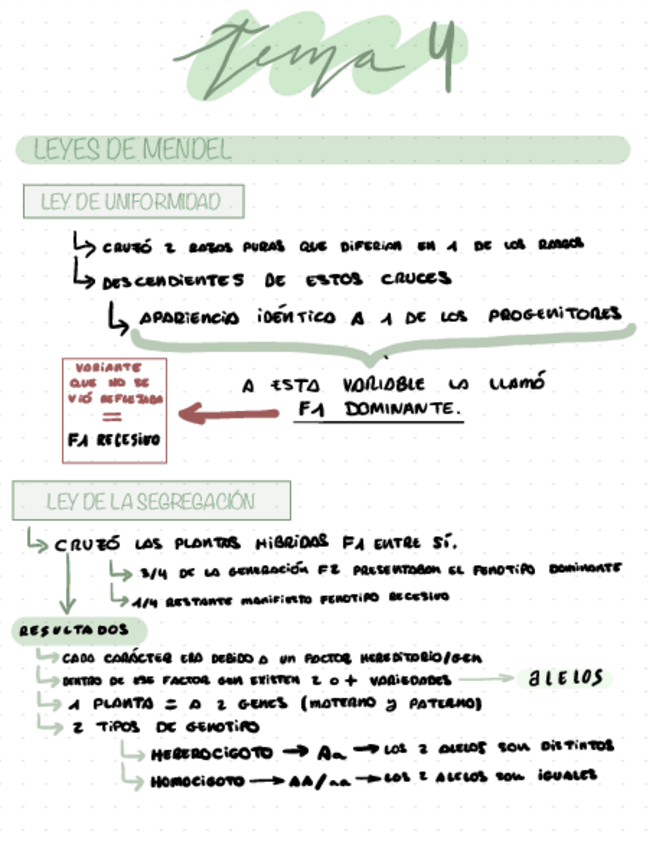 tema 4
LEYES DE MENDEL
LEY DE UNIFORMIDAD
CRUZÓ 2 RAZAS PURAS QUE DIFERIAN EN 1 DE LOS RASGOS
DESCENDIENTES DE ESTOS CRUCES
APARIENCIA IDÉNTICA A 1 DE LOS PROGENITORES
VARIANTE
QUE NO SE
VIÓ REFLEJADA
=
F1 RECESIVO
A ESTA VARIABLE LA LLAMÓ
F1 DOMINANTE.
LEY DE LA SEGREGACIÓN
CRUZÓ LAS PLANTAS HIBRIDAS F1 ENTRE SÍ.
3/4 DE LA GENERACIÓN F2 PRESENTABAN EL FENOTIPO DOMINANTE
1/4 RESTANTE MANIFIESTO FENOTIPO RECESIVO
RESULTADOS
CADA CARÁCTER ERA DEBIDO A UN FACTOR HEREDITARIO/GEN
DENTRO DE ESE FACTOR GEN EXISTEN 2 O + VARIEDADES → alelos
1 PLANTA = A 2 GENES (MATERNO y PATERNO)
2 TIPOS DE GENOTIPO
HEREROCIGOTO → Aa → LOS 2 ALELOS SON DISTINTOS
HOMOCIGOTO → AA/aa → LOS 2 ALELOS SON IGUALES